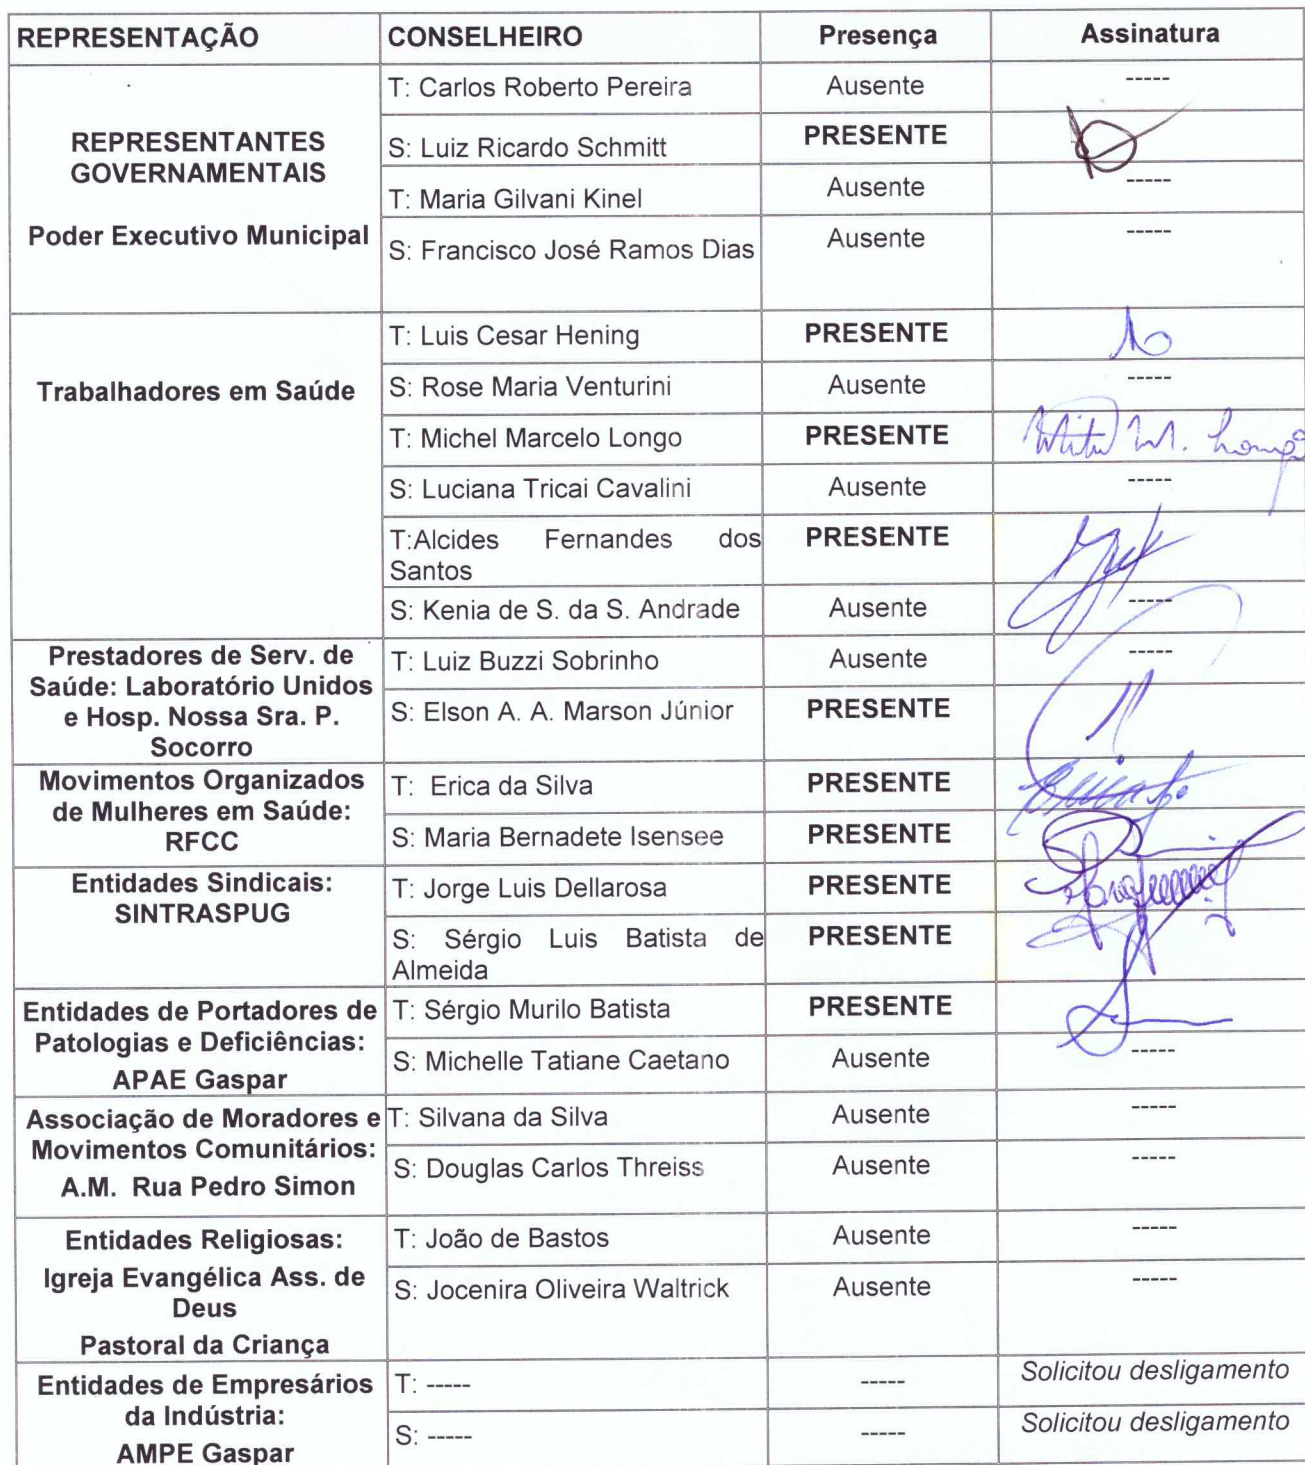 REPRESENTAÇÃO CONSELHEIRO Presença Assinatura
REPRESENTANTES
GOVERNAMENTAIS
Poder Executivo Municipal
T: Carlos Roberto Pereira Ausente -----
S: Luiz Ricardo Schmitt PRESENTE
T: Maria Gilvani Kinel Ausente -----
S: Francisco José Ramos Dias Ausente -----
Trabalhadores em Saúde
T: Luis Cesar Hening PRESENTE
S: Rose Maria Venturini Ausente -----
T: Michel Marcelo Longo PRESENTE M. Longo
S: Luciana Tricai Cavalini Ausente -----
T:Alcides Fernandes dos PRESENTE
Santos
S: Kenia de S. da S. Andrade Ausente -----
Prestadores de Serv. de
Saúde: Laboratório Unidos
e Hosp. Nossa Sra. P.
Socorro
T: Luiz Buzzi Sobrinho Ausente -----
S: Elson A. A. Marson Júnior PRESENTE
Movimentos Organizados
de Mulheres em Saúde:
RFCC
T: Erica da Silva PRESENTE
S: Maria Bernadete Isensee PRESENTE
Entidades Sindicais:
SINTRASPUG
T: Jorge Luis Dellarosa PRESENTE
S: Sérgio Luis Batista de PRESENTE
Almeida
Entidades de Portadores de
Patologias e Deficiências:
APAE Gaspar
T: Sérgio Murilo Batista PRESENTE
S: Michelle Tatiane Caetano Ausente -----
Associação de Moradores e
Movimentos Comunitários:
A.M. Rua Pedro Simon
T: Silvana da Silva Ausente -----
S: Douglas Carlos Threiss Ausente -----
Entidades Religiosas:
Igreja Evangélica Ass. de
Deus
Pastoral da Criança
T: João de Bastos Ausente -----
S: Jocenira Oliveira Waltrick Ausente -----
Entidades de Empresários
da Indústria:
AMPE Gaspar
T: ----- ----- Solicitou desligamento
S: ----- ----- Solicitou desligamento